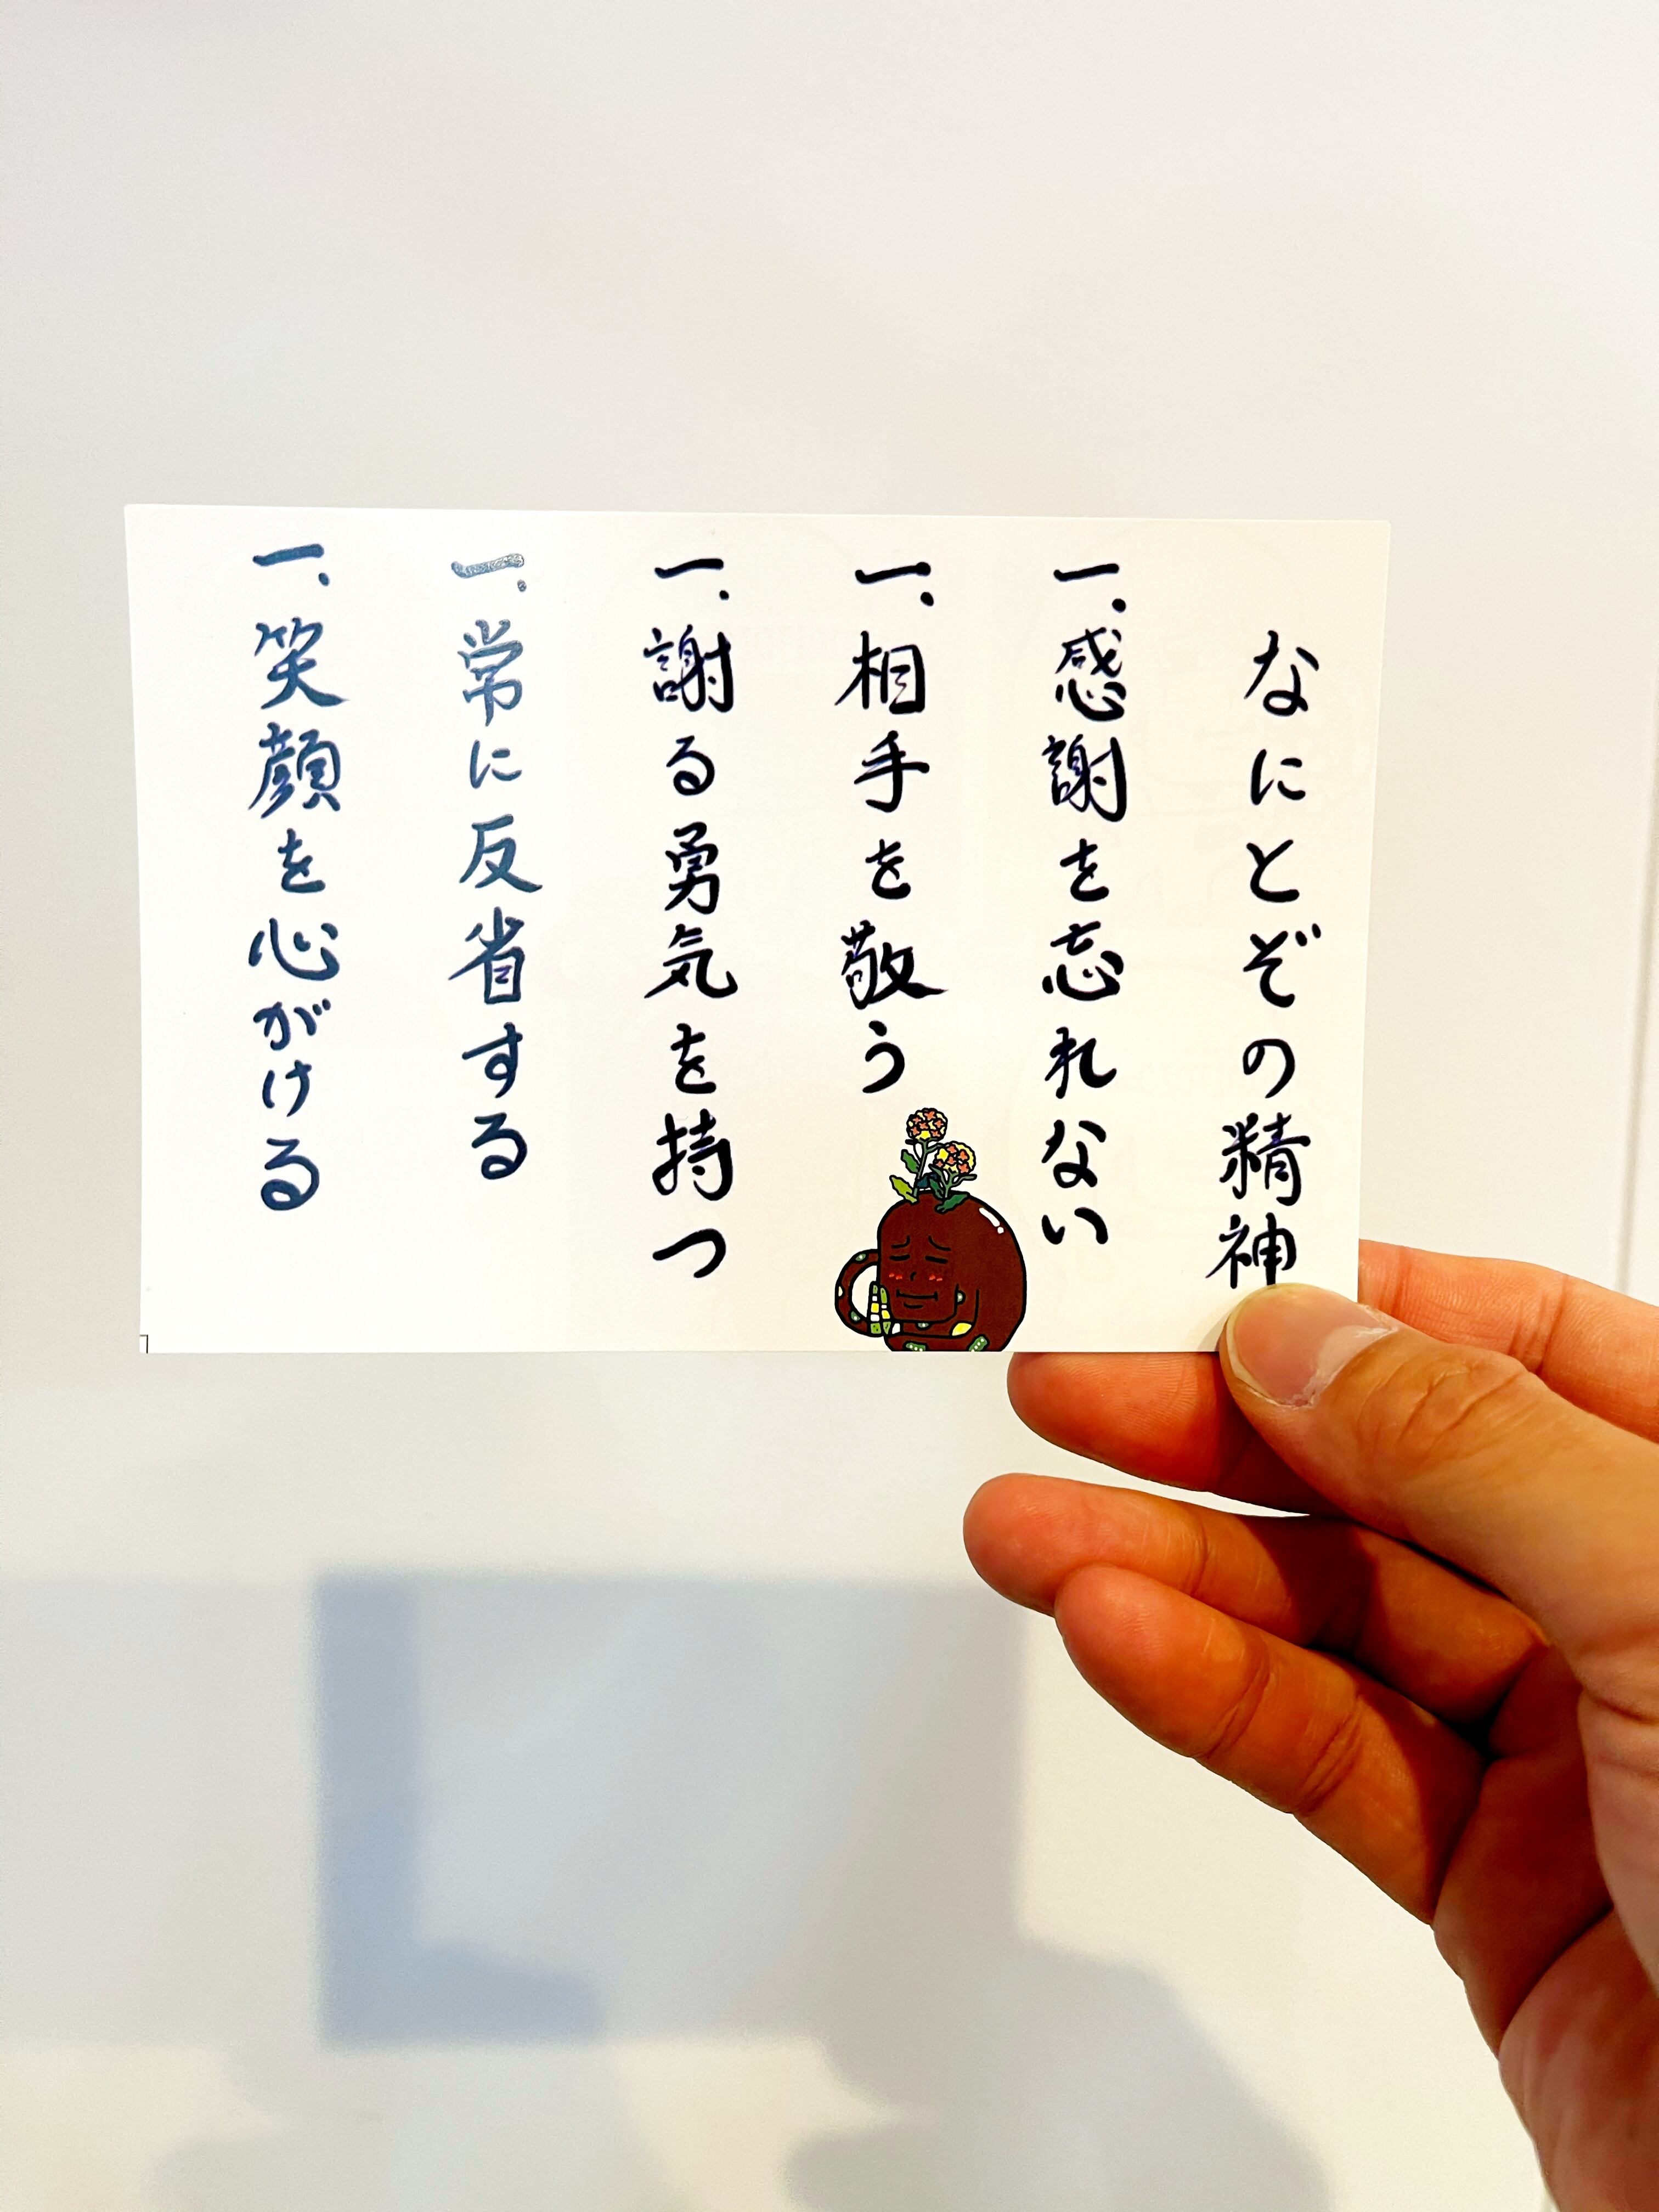 なにとぞの精神
一、感謝を忘れない
一、相手を敬う
一、謝る勇気を持つ
一、常に反省する
一、笑顔を心がける